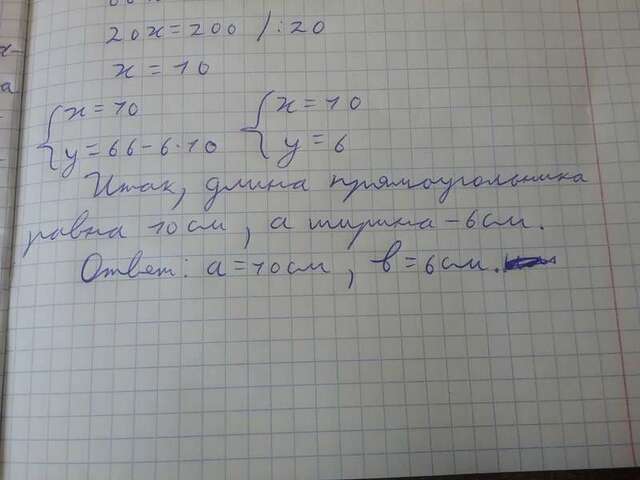 20x=200 /:20
x=10
{x=10 {x=10
y=66-6·10 y=6
Итак, длина прямоугольника
равна 10 см, а ширина - 6 см.
Ответ: a=10 см, b=6 см.